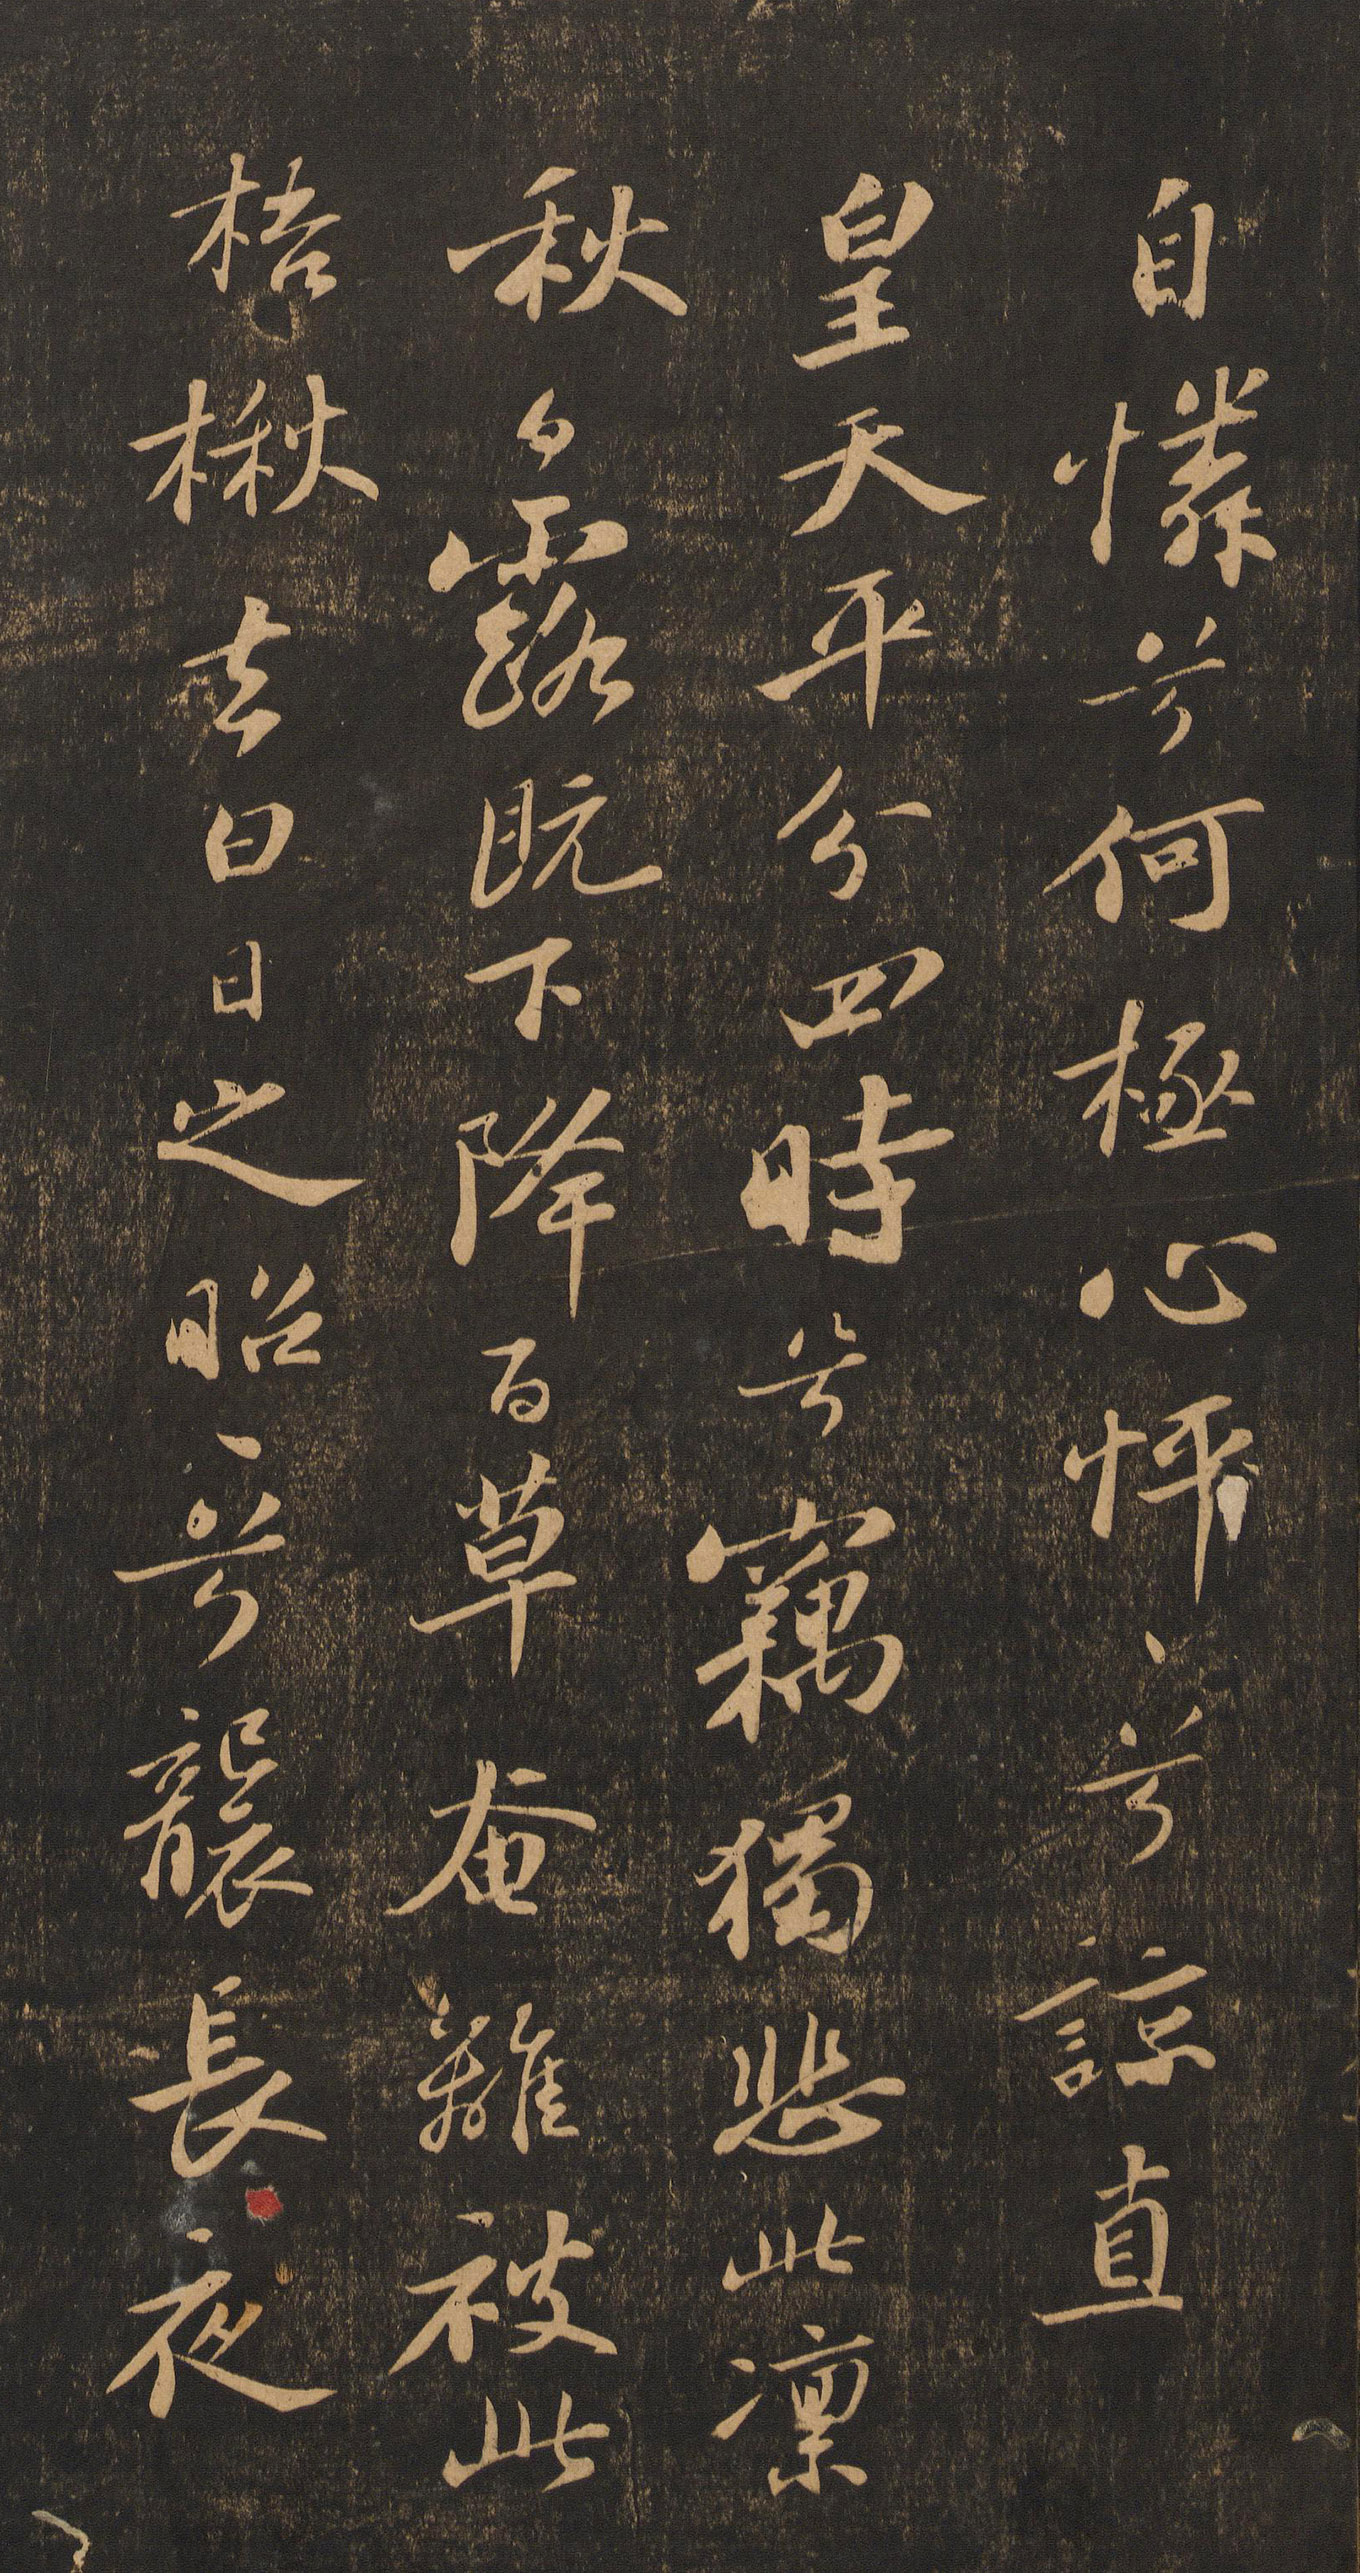 自憐兮何極心怦、兮諒直
皇天平分四時兮竊獨悲此凜
秋白露既下降百草奄離披此
梧楸去白日之昭、兮襲長夜